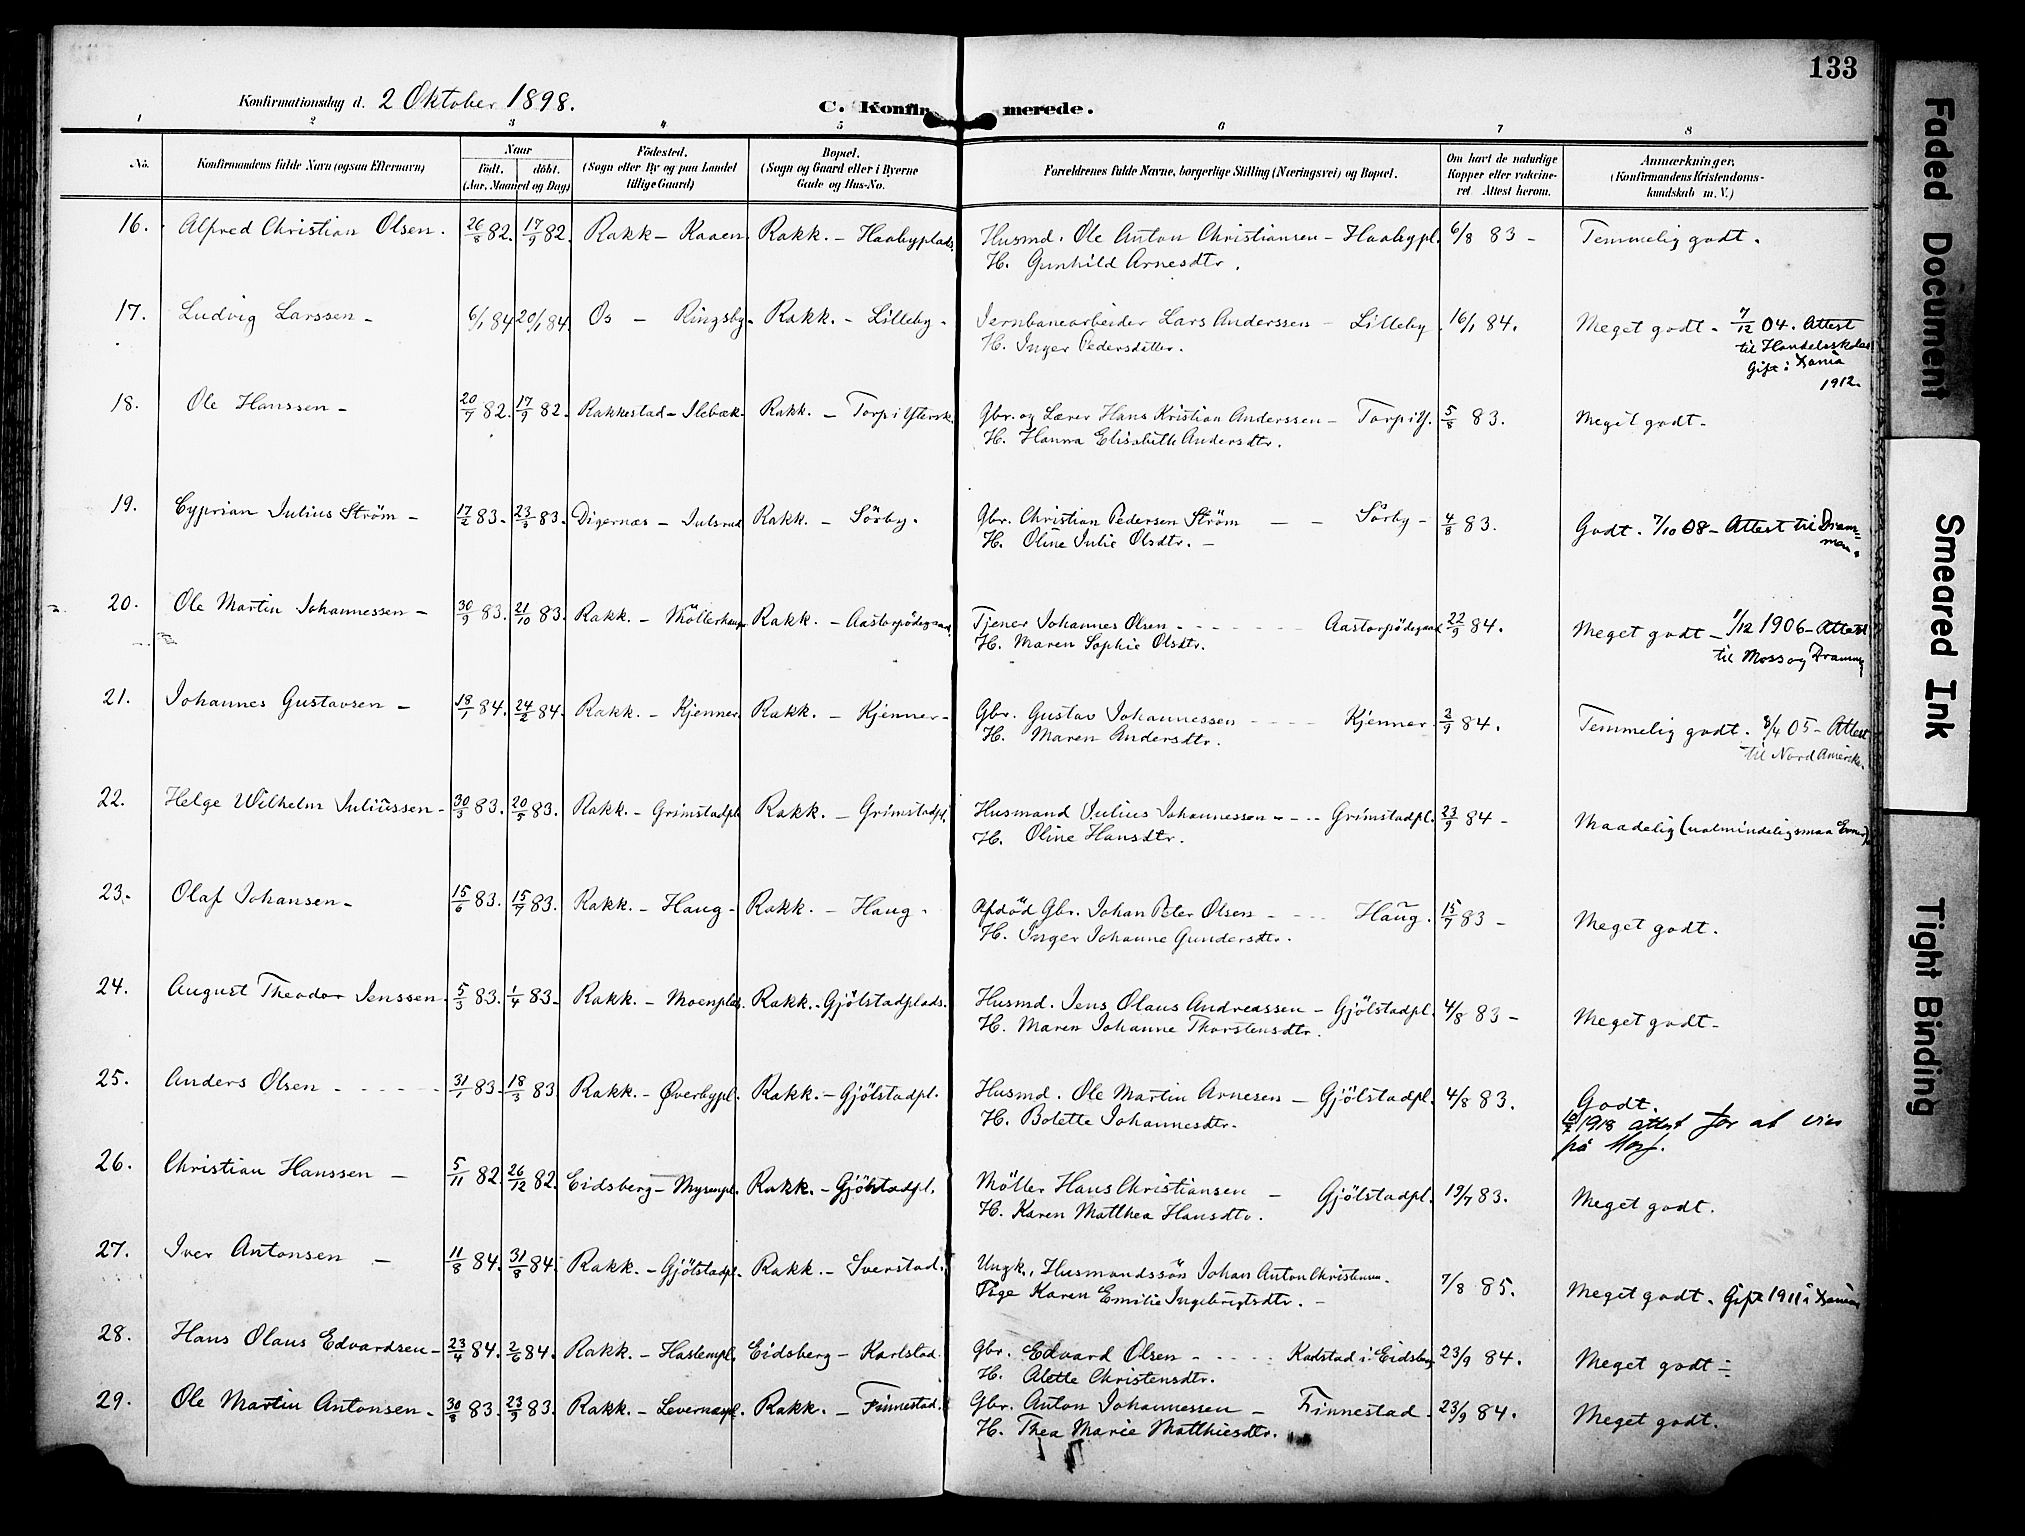 133
Konfirmationsdag d. 2 Oktober 1898.
C. Konfirmerede.
1 2 3 4 5 6 7 8
No. Konfirmandens fulde Navn (ogsaa Efternavn) Naar Födt. döbt. (Aar, Maaned og Dag) Födested. (Sogn eller By og paa Landet tillige Gaard) Bopæl. (Sogn og Gaard eller i Byerne Gade og Hus-No. Forældrenes fulde Navne, borgerlige Stilling (Næringsvei) og Bopæl. Om havt de naturlige Kopper eller vakcineret Attest herom. Anmærkninger. (Konfirmandens Kristendomskundskab m. V.)
16. Alfred Christian Olsen. 26/8 82. 17/9 82. Rakk - Kaaen Rakk. - Haabyplads. Husmd. Ole Anton Christiansen - Haabypl. 6/8 83 - Temmelig godt.
H. Gunhild Arnesdtr.
17. Ludvig Larssen - 6/1 84 20/1 84 Os - Ringsby - Rakk. - Lilleby - Jernbanearbeider Lars Anderssen - Lilleby. 16/1 84. Meget godt. 7/12 04. Attest
H. Inger Pedersdatter. til Handelsskolen
Gift i Xania
1912.
18. Ole Hanssen - 20/7 82. 17/9 82. Rakkestad - Ilebæk - Rakk. - Torp i Ytersk. Gbr. og Lærer Hans Kristian Anderssen - Torp i Y. 5/8 83. Meget godt.
H. Hanna Elisabeth Andersdtr.
19. Cyprian Julius Ström - 17/2 83. 23/3 83. Digernæs - Julsrud Rakk. - Sörby. Gbr. Christian Pedersen Ström - - Sörby - 4/8 83. Godt. 7/10 08 - Attest til Dram=
H. Oline Julie Olsdtr. - men.
20. Ole Martin Johannessen - 30/9 83. 21/10 83. Rakk. - Möllerhaugen Rakk. - Aastorpödegaard. Tjener Johannes Olsen - - - Aastorpödegaard 22/9 84. Meget godt - 1/12 1906 - Attest
H. Maren Sophie Olsdtr. til Moss og Drammen
21. Johannes Gustavsen - 18/1 84. 24/2 84. Rakk. - Kjenner. Rakk. - Kjenner - Gbr. Gustav Johannessen - - - Kjenner. 2/9 84. Temmelig godt. 8/4 05 - Attest
H. Maren Andersdtr. til Nord Amerika.
22. Helge Wilhelm Juliussen - 30/3 83. 20/5 83. Rakk. - Grimstadpl. Rakk. - Grimstadpl. Husmand Julius Johannessen - - - Grimstadpl. 23/9 84 - Maadelig (ualmindelig smaa Evner).
H. Oline Hansdtr.
23. Olaf Johansen - 15/6 83. 15/7 83. Rakk. - Haug - Rakk. - Haug. Afdöd Gbr. Johan Peter Olsen - - - Haug. 15/7 83 - Meget godt.
H. Inger Johanne Gundersdtr.
24. August Theodor Jenssen. 5/3 83. 1/4 83 - Rakk. - Moenplads. Rakk. - Gjölstadplads. Husmd. Jens Olaus Andreassen - Gjölstadpl. 4/8 83 - Meget godt -
H. Maren Johanne Thorstensdtr.
25. Anders Olsen - - - 31/1 83. 18/3 83 Rakk. - Øverbypl. Rakk. - Gjölstadpl. Husmd. Ole Martin Arnesen - Gjölstadpl. 4/8 83. Godt.
H. Bolette Johannesdtr. 1918 attest for at vies
på
26. Christian Hanssen - 5/11 82. 26/12 82. Eidsberg - Mysenpl. Rakk. - Gjölstadpl. Möller Hans Christiansen - Gjölstadpl. 19/7 83. Meget godt.
H. Karen Matthea Hansdtr.
27. Iver Antonsen - 11/8 84. 31/8 84. Rakk. - Gjölstadpl. Rakk. - Iverstad. Ungk. Husmandssön Johan Anton Christensen. 7/8 85. Meget godt. Gift 1911 i Xania
Pige Karen Emilie Ingebrigtsdtr. -
28. Hans Olaus Edvardsen - 23/4 84. 2/6 84. Rakk. - Haslempl. Eidsberg - Karlstad. Gbr. Edvard Olsen - - - Karlstad i Eidsberg 23/9 84. Meget godt -
H. Alette Christensdtr.
29. Ole Martin Antonsen - 30/8 83. 23/9 83. Rakk. - Levernæspl. Rakk. - Finnestad. Gbr. Anton Johannessen - Finnestad - 23/9 84. Meget godt.
H. Thea Marie Matthiesdtr.
Faded Document
Smeared Ink
Tight Binding